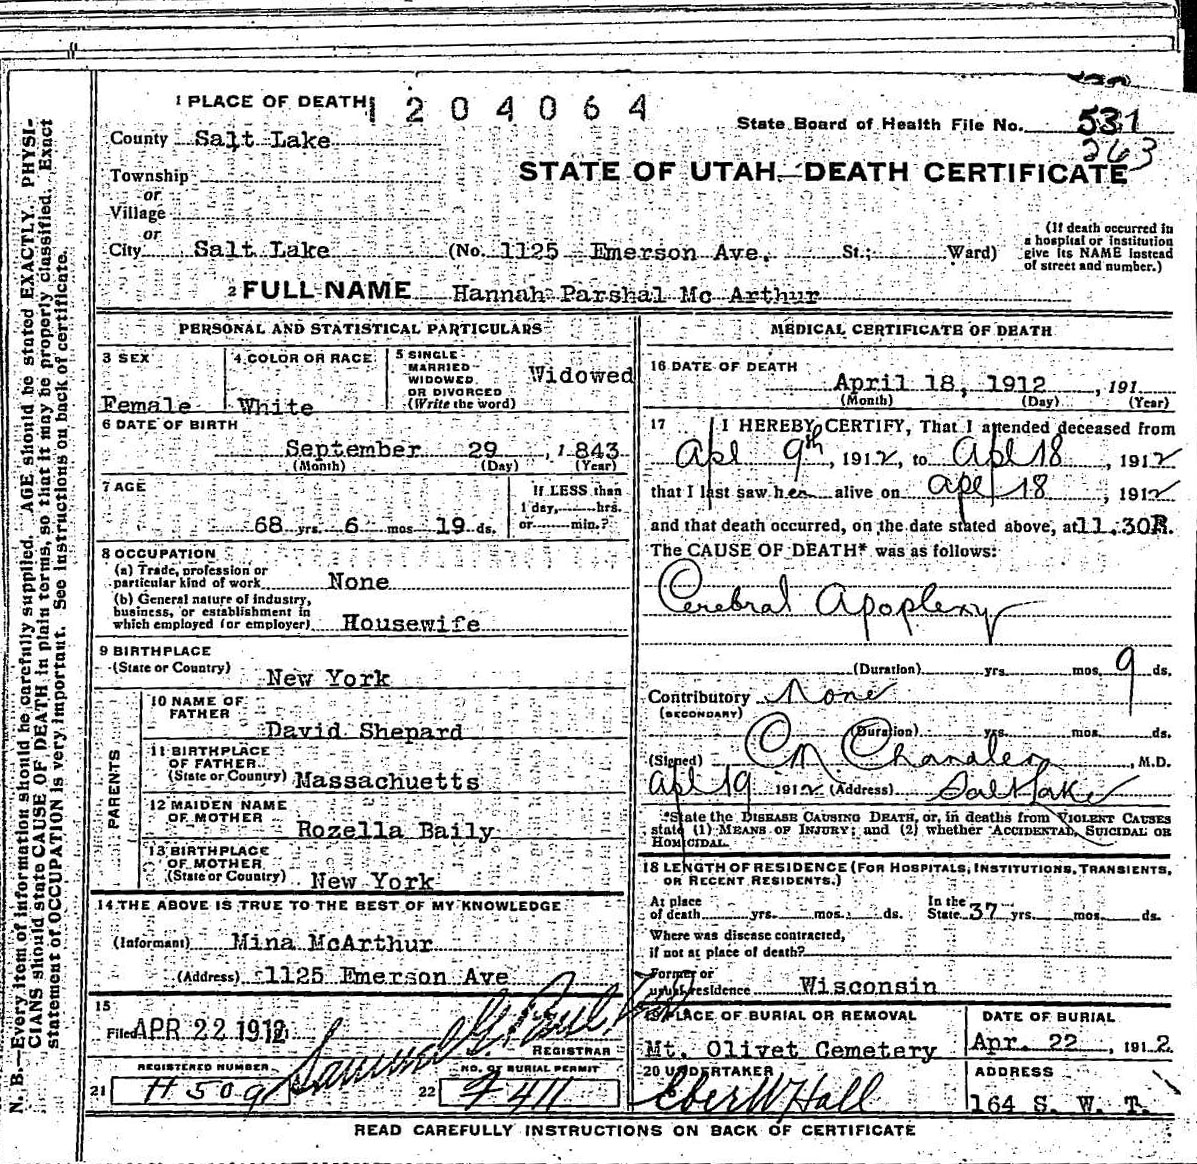 1 PLACE OF DEATH
1204064
State Board of Health File No. 531
263
County Salt Lake
STATE OF UTAH—DEATH CERTIFICATE
Township
or
Village
or
City Salt Lake (No. 1125 Emerson Ave. St.; Ward)
(If death occurred in
a hospital or institution
give its NAME instead
of street and number.)
2 FULL NAME Hannah Parshal Mc Arthur
PERSONAL AND STATISTICAL PARTICULARS
3 SEX
Female
4 COLOR OR RACE
White
5 SINGLE
MARRIED
WIDOWED
OR DIVORCED
(Write the word)
Widowed
6 DATE OF BIRTH
September 29, 1843
(Month) (Day) (Year)
7 AGE
68 yrs. 6 mos 19 ds.
If LESS than
1 day, hrs.
or min.?
8 OCCUPATION
(a) Trade, profession or
particular kind of work None
(b) General nature of industry,
business, or establishment in
which employed (or employer) Housewife
9 BIRTHPLACE
(State or Country) New York
PARENTS
10 NAME OF
FATHER David Shepard
11 BIRTHPLACE
OF FATHER
(State or Country) Massachuetts
12 MAIDEN NAME
OF MOTHER Rozella Baily
13 BIRTHPLACE
OF MOTHER
(State or Country) New York
14 THE ABOVE IS TRUE TO THE BEST OF MY KNOWLEDGE
(Informant) Mina McArthur
(Address) 1125 Emerson Ave
15
Filed APR 22 1912
REGISTRAR
REGISTERED NUMBER
21 H509
NO. OF BURIAL PERMIT
22 F411
MEDICAL CERTIFICATE OF DEATH
16 DATE OF DEATH
April 18, 1912, 191
(Month) (Day) (Year)
17 I HEREBY CERTIFY, That I attended deceased from
Apl 9th, 1912, to Apl 18, 1912
that I last saw her alive on Apl 18, 1912
and that death occurred, on the date stated above, at 11.30P.
The CAUSE OF DEATH* was as follows:
Cerebral Apoplexy
(Duration) yrs. mos. 9 ds.
Contributory None
(SECONDARY)
(Duration) yrs. mos. ds.
(Signed) C M Chandler, M.D.
Apl 19 1912 (Address) Salt Lake
*State the DISEASE CAUSING DEATH, or, in deaths from VIOLENT CAUSES
state (1) MEANS OF INJURY; and (2) whether ACCIDENTAL, SUICIDAL OR
HOMICIDAL.
18 LENGTH OF RESIDENCE (FOR HOSPITALS, INSTITUTIONS, TRANSIENTS,
OR RECENT RESIDENTS.)
At place
of death yrs. mos. ds.
In the
State 37 yrs. mos. ds.
Where was disease contracted,
if not at place of death?
Former or
usual residence Wisconsin
19 PLACE OF BURIAL OR REMOVAL
Mt. Olivet Cemetery
DATE OF BURIAL
Apr. 22, 1912.
20 UNDERTAKER
Eber W Hall
ADDRESS
164 S. W. T.
READ CAREFULLY INSTRUCTIONS ON BACK OF CERTIFICATE
N. B.—Every item of information should be carefully supplied. AGE should be stated EXACTLY. PHYSI-
CIANS should state CAUSE OF DEATH in plain terms, so that it may be properly classified. Exact
statement of OCCUPATION is very important. See instructions on back of certificate.